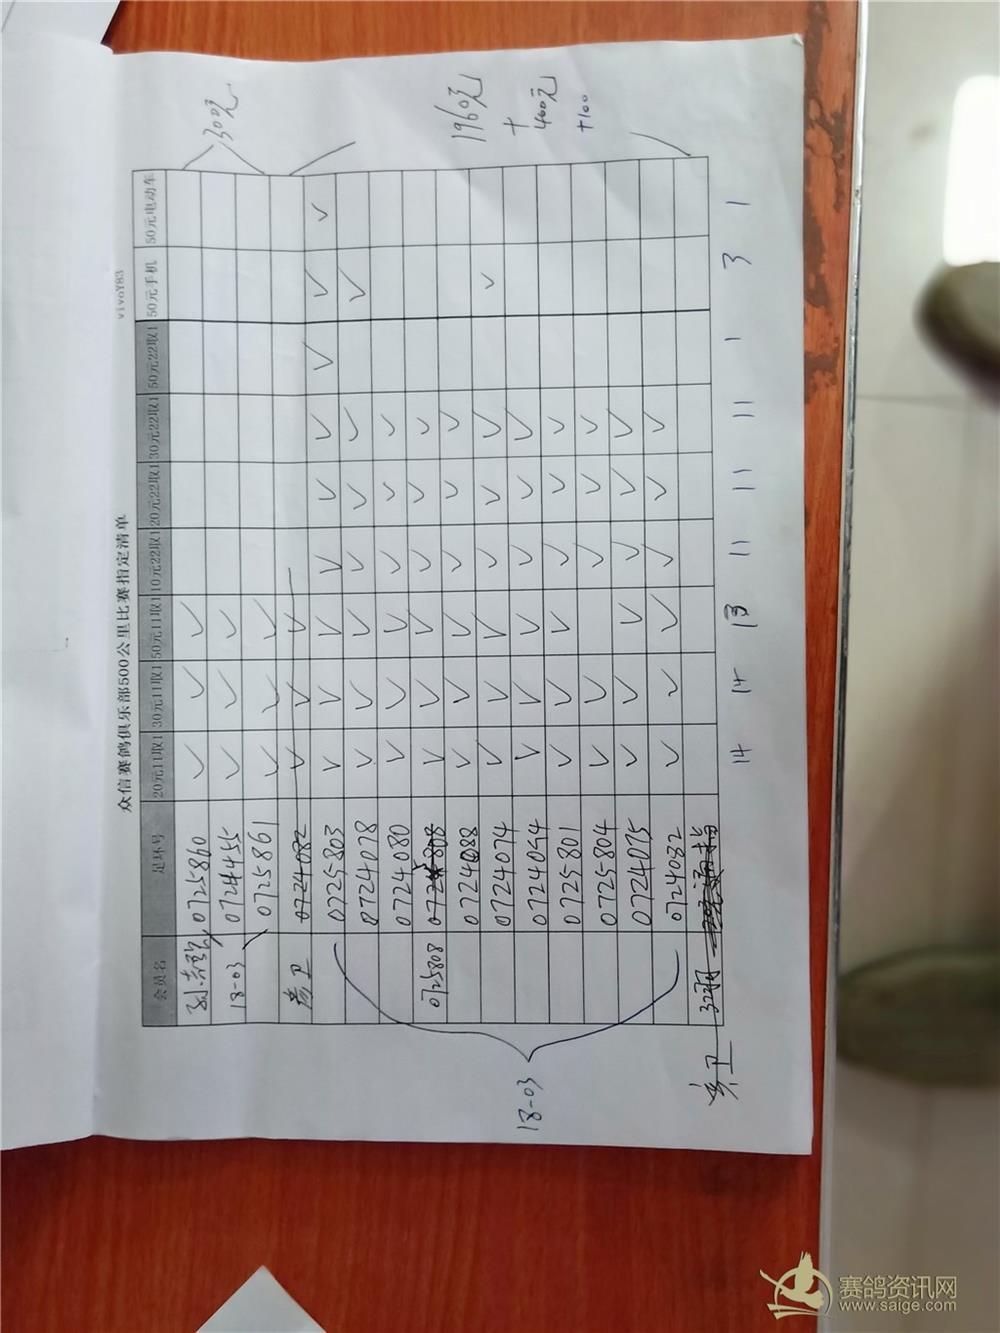 众信赛鸽俱乐部500公里比赛指定清单
vivoY83
会员名 足环号 20元11取1 30元11取1 50元11取1 10元22取1 20元22取1 30元22取1 50元22取1 50元手机 50元电动车
0725860 √ √ √
18-03 0724455 √ √ √
0725861 √ √ √
300元
彦卫 0724082 √ √ √
0725803 √ √ √ √ √ √ √ √ √
0724078 √ √ √ √ √ √ √
0724080 √ √ √ √ √ √
0725808 √ √ √ √ √ √
0724088 √ √ √ √ √ √
0724074 √ √ √ √ √ √ √
0724054 √ √ √ √ √ √
0725801 √ √ √ √ √ √
0725804 √ √ √ √ √
0724075 √ √ √ √ √ √
0724032 √ √ √ √ √ √
18-03
1960元
+
400元
+100
14 14 13 11 11 11 1 3 1
赛鸽资讯网
www.saige.com